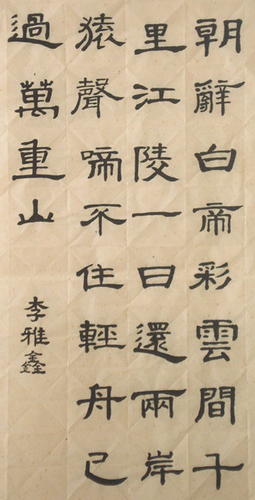 朝辭白帝彩雲間千
里江陵一日還兩岸
猿聲啼不住輕舟已
過萬重山
李雅鑫